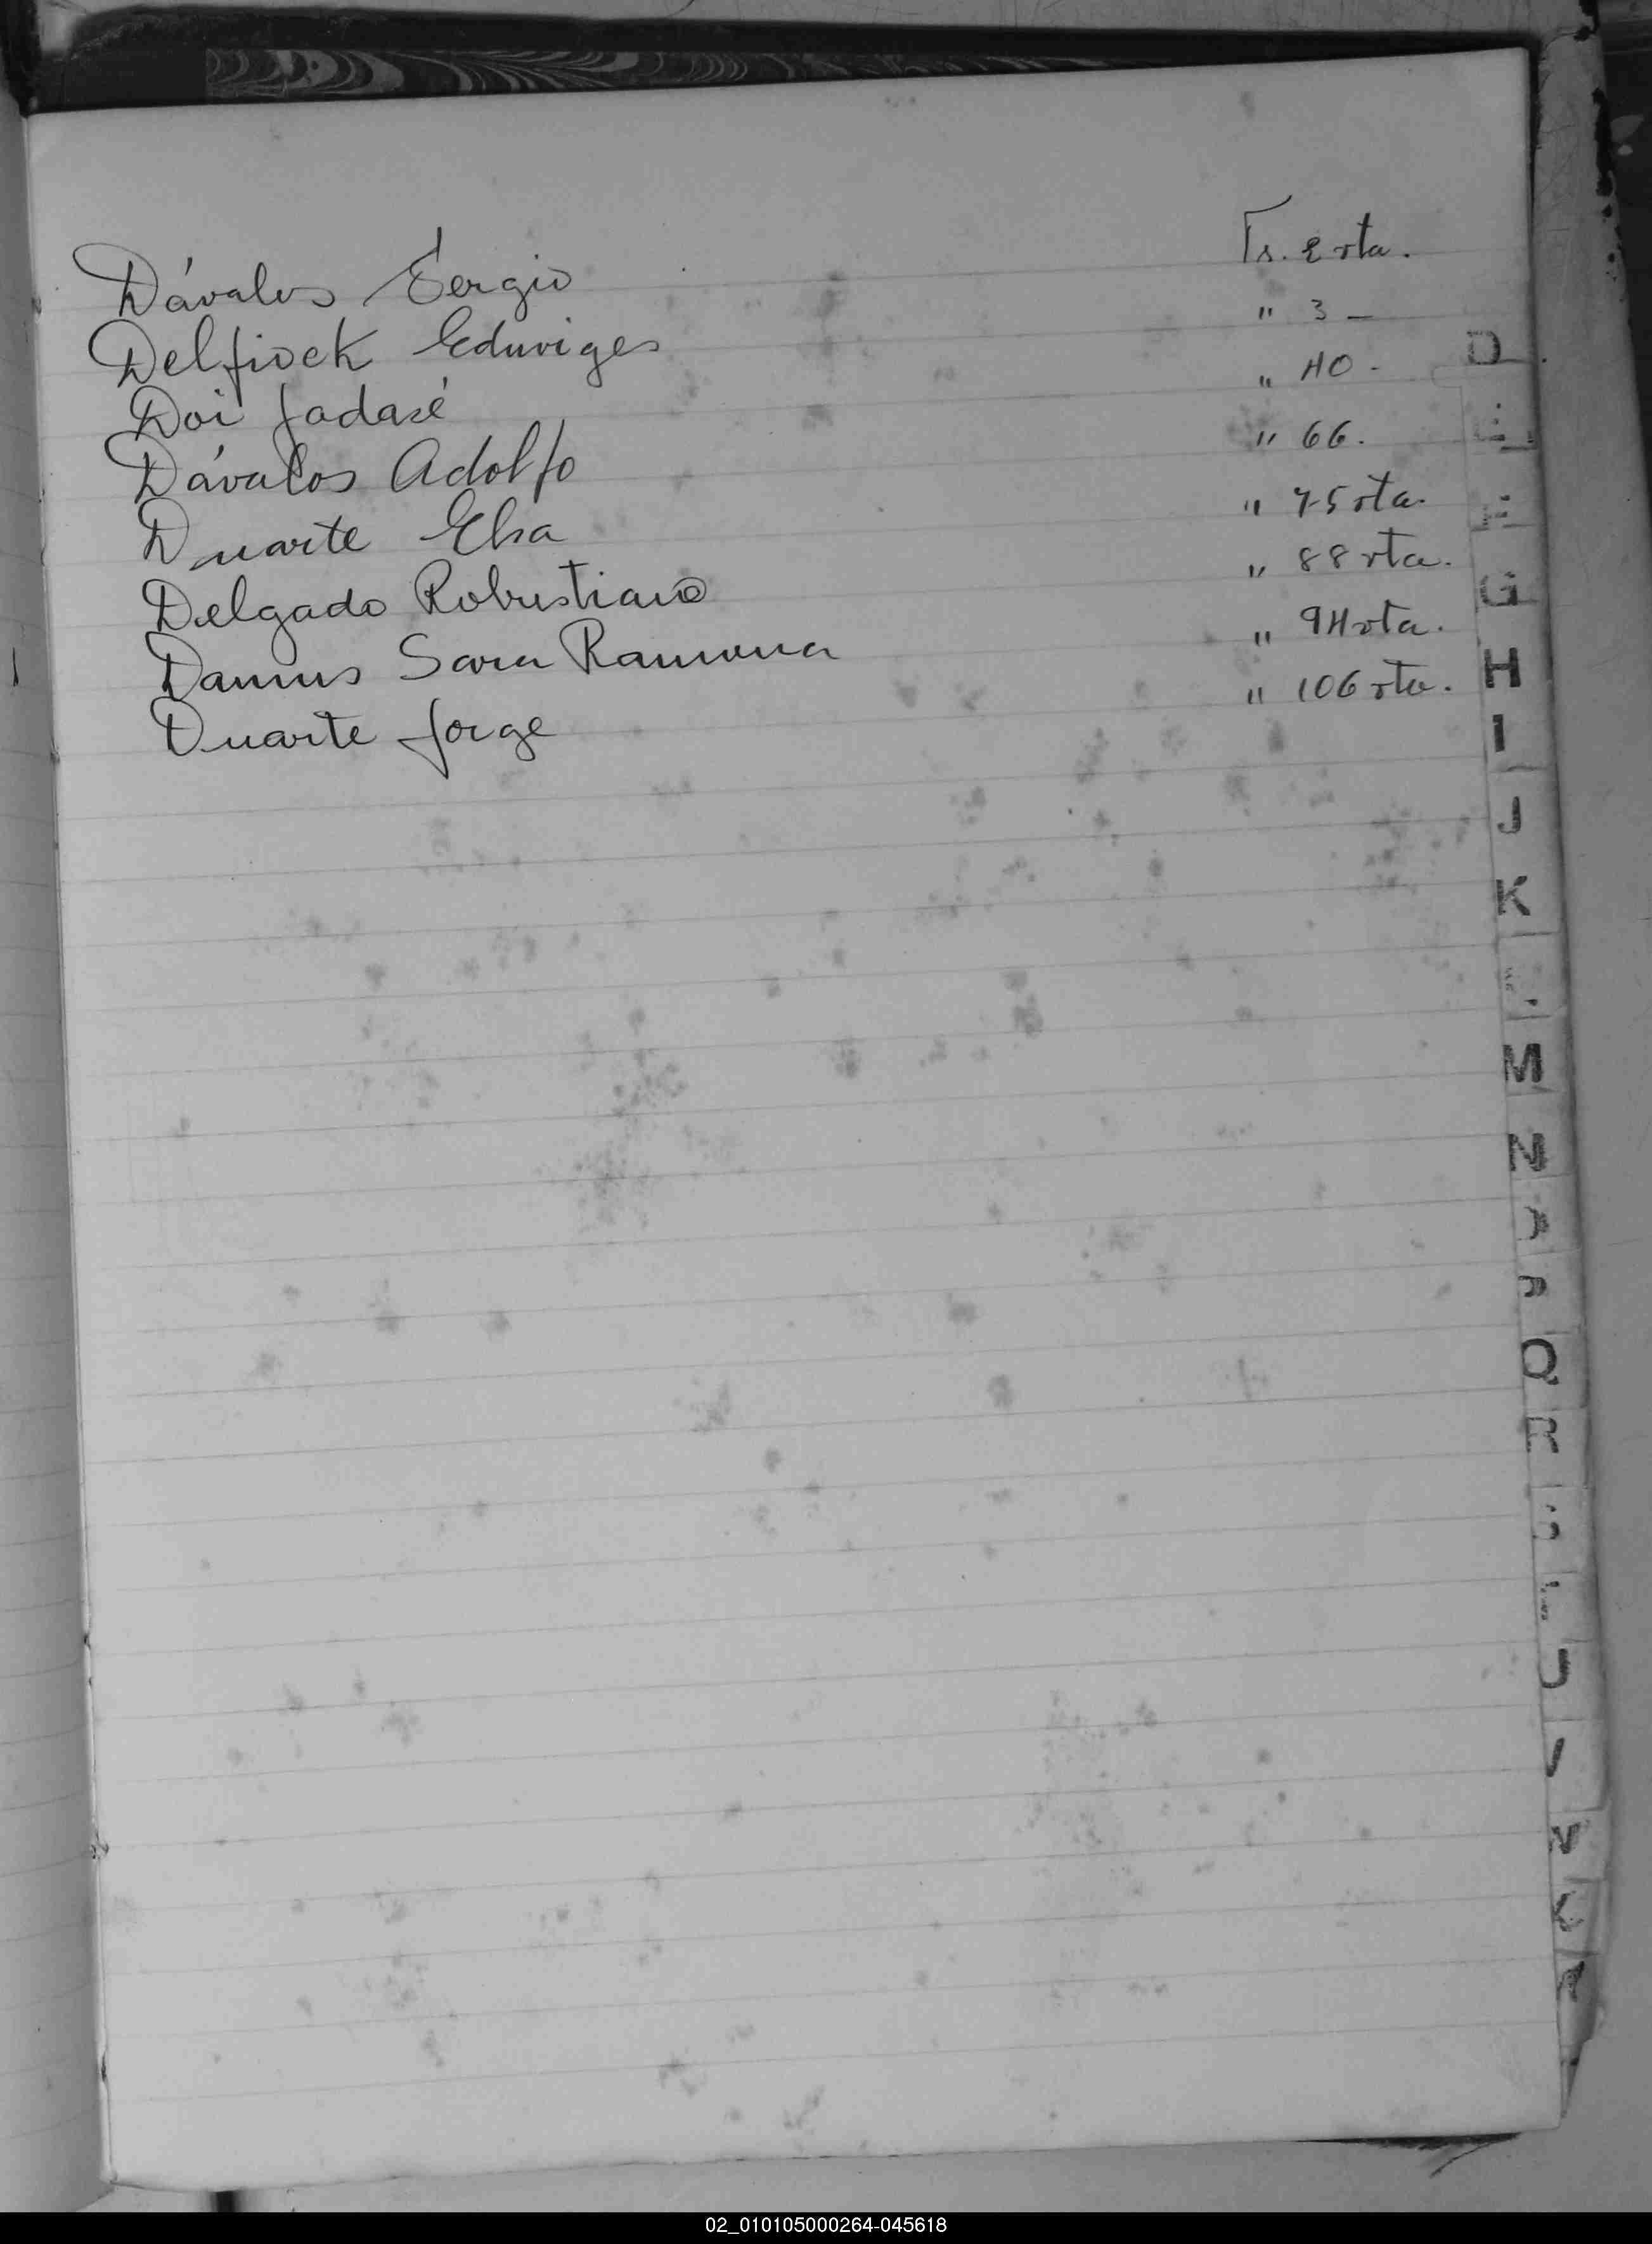 Dávalos Sergio Fs. 2 vta.
Delfiock Eduviges " 3 -
Doi Jadasé " 40 -
Dávalos Adolfo " 66.
Duarte Elsa " 75 vta.
Delgado Robustiano " 88 vta.
Damus Sara Ramona " 94 vta.
Duarte Jorge " 106 vta.
D
E
F
G
H
I
J
K
M
N
Q
R
02_010105000264-045618